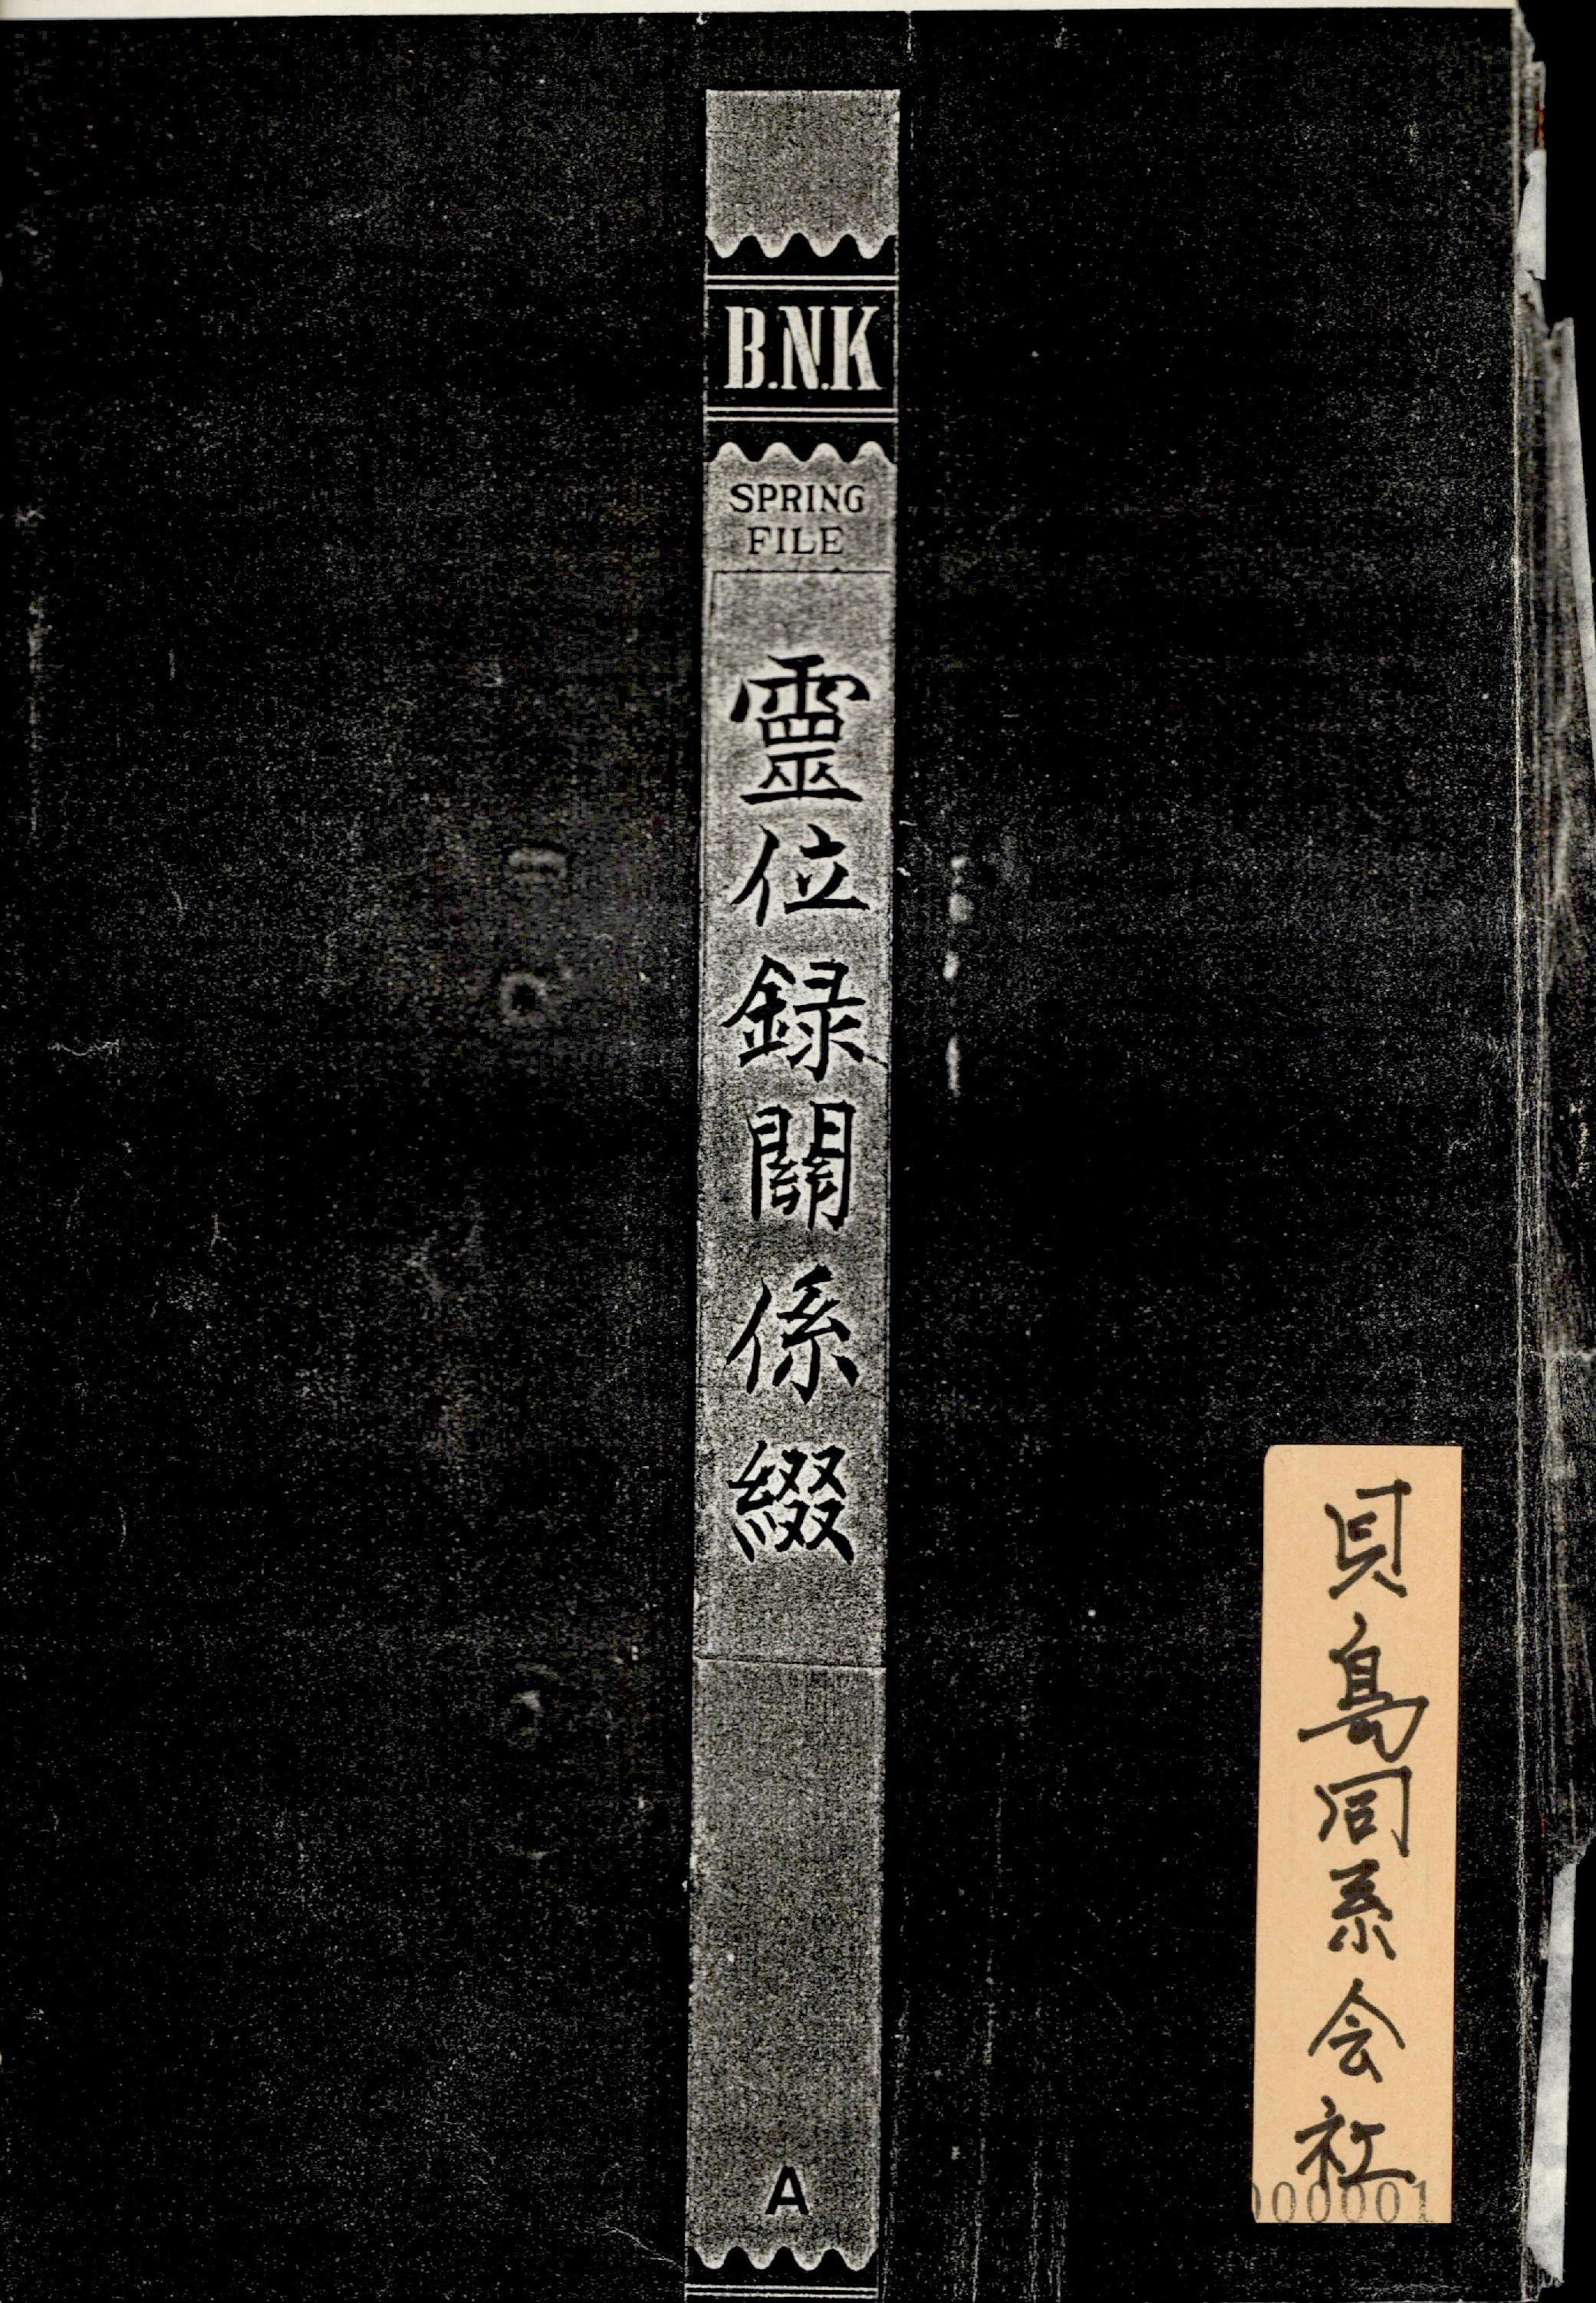 B.N.K
SPRING
FILE
靈位録關係綴
A
貝島同系会社
000001